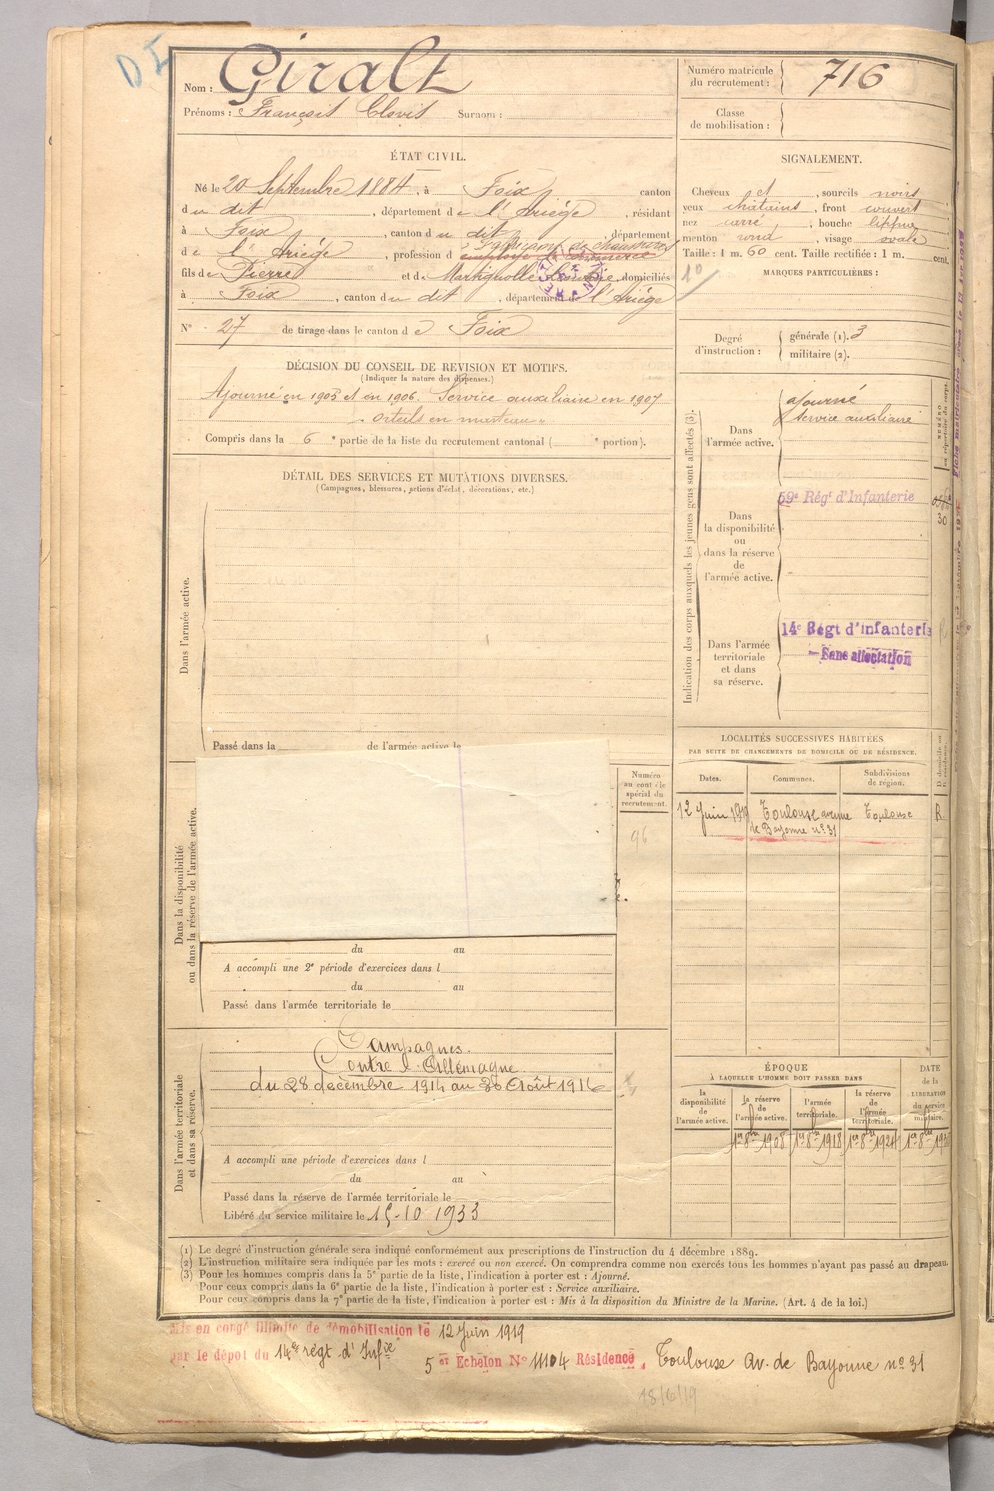 DI
Nom : Giralt
Prénoms : François Clovis Surnom :
Numéro matricule du recrutement : 716
Classe de mobilisation :
ÉTAT CIVIL.
Né le 20 Septembre 1884, à Foix, canton
du dit, département de l'Ariège, résidant
à Foix, canton du dit, département
de l'Ariège, profession d employé de commerce
de chaussures
fils de Pierre et de Martignolle, domiciliés
à Foix, canton du dit, département de l'Ariège
N° 27 de tirage dans le canton d e Foix
SIGNALEMENT.
Cheveux et, sourcils noirs
yeux chatains, front couvert
nez carré, bouche lippue
menton rond, visage ovale
Taille : 1 m. 60 cent. Taille rectifiée : 1 m. cent.
MARQUES PARTICULIÈRES :
10
Degré d'instruction : générale (1). 3
militaire (2).
DÉCISION DU CONSEIL DE REVISION ET MOTIFS.
(Indiquer la nature des dispenses.)
Ajourné en 1905 et en 1906. Service auxiliaire en 1907
"orteils en marteau"
Compris dans la 6e partie de la liste du recrutement cantonal ( e portion).
DÉTAIL DES SERVICES ET MUTATIONS DIVERSES.
(Campagnes, blessures, actions d'éclat, décorations, etc.)
Dans l'armée active.
Passé dans la de l'armée active le
Indication des corps auxquels les jeunes gens sont affectés (3).
Dans l'armée active.
ajourné
Service auxiliaire
Dans la disponibilité ou dans la réserve de l'armée active.
59e Régt d'Infanterie
30
Dans l'armée territoriale et dans sa réserve.
14e Régt d'infanterie
Sans affectation
LOCALITÉS SUCCESSIVES HABITÉES
PAR SUITE DE CHANGEMENTS DE DOMICILE OU DE RÉSIDENCE.
Dates. Communes. Subdivisions de région. D domicile ou R résidence.
12 Juin 1919 Toulouse avenue de Bayonne n° 31 Toulouse R
Dans la disponibilité ou dans la réserve de l'armée active.
Numéro au contrôle spécial du recrutement.
96
du au
A accompli une 2e période d'exercices dans l
du au
Passé dans l'armée territoriale le
Dans l'armée territoriale et dans sa réserve.
Campagnes.
Contre l'Allemagne
du 28 décembre 1914 au 30 Août 1916
A accompli une période d'exercices dans l
du au
Passé dans la réserve de l'armée territoriale le
Libéré du service militaire le 15-10 1933
ÉPOQUE
À LAQUELLE L'HOMME DOIT PASSER DANS
DATE de la LIBÉRATION du service militaire.
la disponibilité de l'armée active. la réserve de l'armée active. l'armée territoriale. la réserve de l'armée territoriale.
1er 8bre 1908 1er 8bre 1918 1er 8bre 1924
(1) Le degré d'instruction générale sera indiqué conformément aux prescriptions de l'instruction du 4 décembre 1889.
(2) L'instruction militaire sera indiquée par les mots : exercé ou non exercé. On comprendra comme non exercés tous les hommes n'ayant pas passé au drapeau.
(3) Pour les hommes compris dans la 5e partie de la liste, l'indication à porter est : Ajourné.
Pour ceux compris dans la 6e partie de la liste, l'indication à porter est : Service auxiliaire.
Pour ceux compris dans la 7e partie de la liste, l'indication à porter est : Mis à la disposition du Ministre de la Marine. (Art. 4 de la loi.)
Mis en congé illimité de démobilisation le 12 Juin 1919
par le dépot du 14e régt d'Infie 5 er Echelon N° 11104 Résidence, Toulouse Av. de Bayonne n° 31
18/6/19